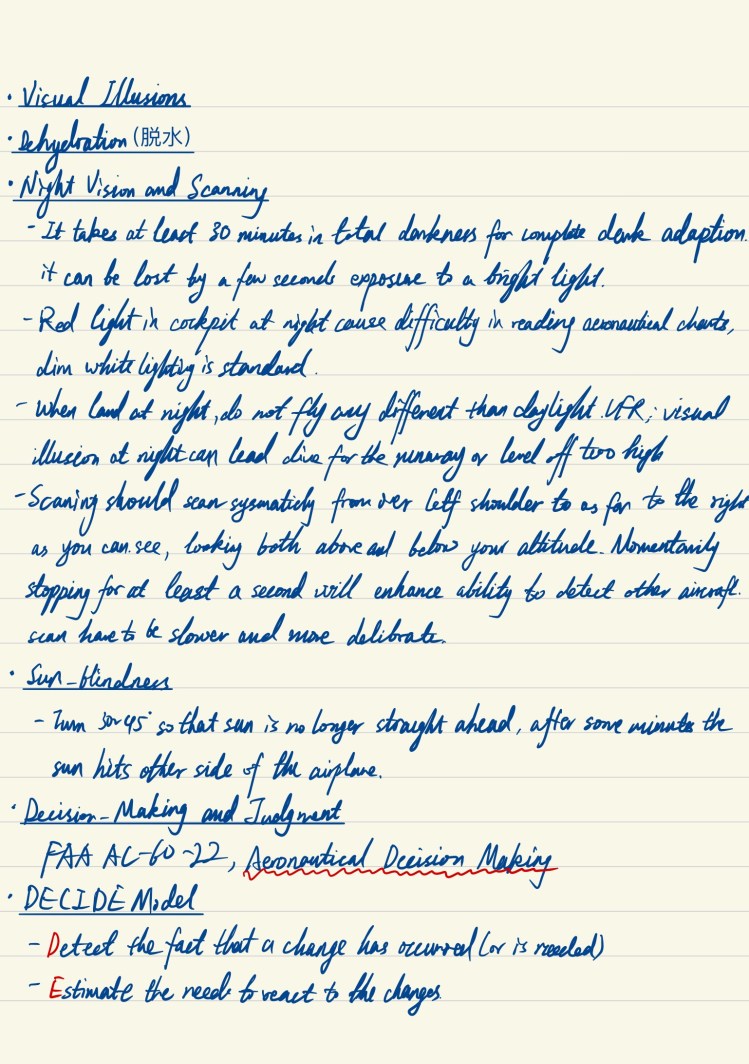 · Visual Illusions
· Dehydration (脱水)
· Night Vision and Scanning
- It takes at least 30 minutes in total darkness for complete dark adaption.
it can be lost by a few seconds exposure to a bright light.
- Red light in cockpit at night cause difficulty in reading aeronautical charts,
dim white lighting is standard.
- When land at night, do not fly any different than daylight VFR; visual
illusion at night can lead dive for the runway or level off too high
- Scaning should scan sysmaticly from over left shoulder to as far to the right
as you can see, looking both above and below your altitude. Momentarily
stopping for at least a second will enhance ability to detect other aircraft.
scan have to be slower and more delibrate.
· Sun-blindness
- Turn 30~45° so that sun is no longer straight ahead, after some minutes the
sun hits other side of the airplane.
· Decision-Making and Judgment
FAA AC-60-22, Aeronautical Decision Making
· DECIDE Model
- Detect the fact that a change has occurred (or is needed)
- Estimate the need to react to the changes